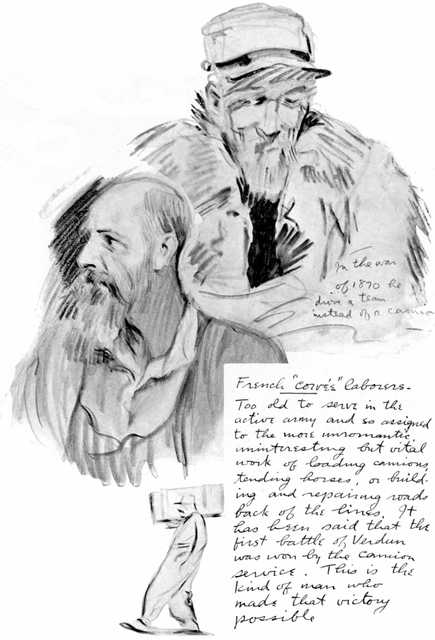 In the war
of 1870 he
drove a team
instead of a camion
French "corvée" laborers-
Too old to serve in the
active army and so assigned
to the more unromantic,
uninteresting but vital
work of loading camions,
tending horses, or build-
ing and repairing roads
back of the lines. It
has been said that the
first battle of Verdun
was won by the camion
service. This is the
kind of man who
made that victory
possible